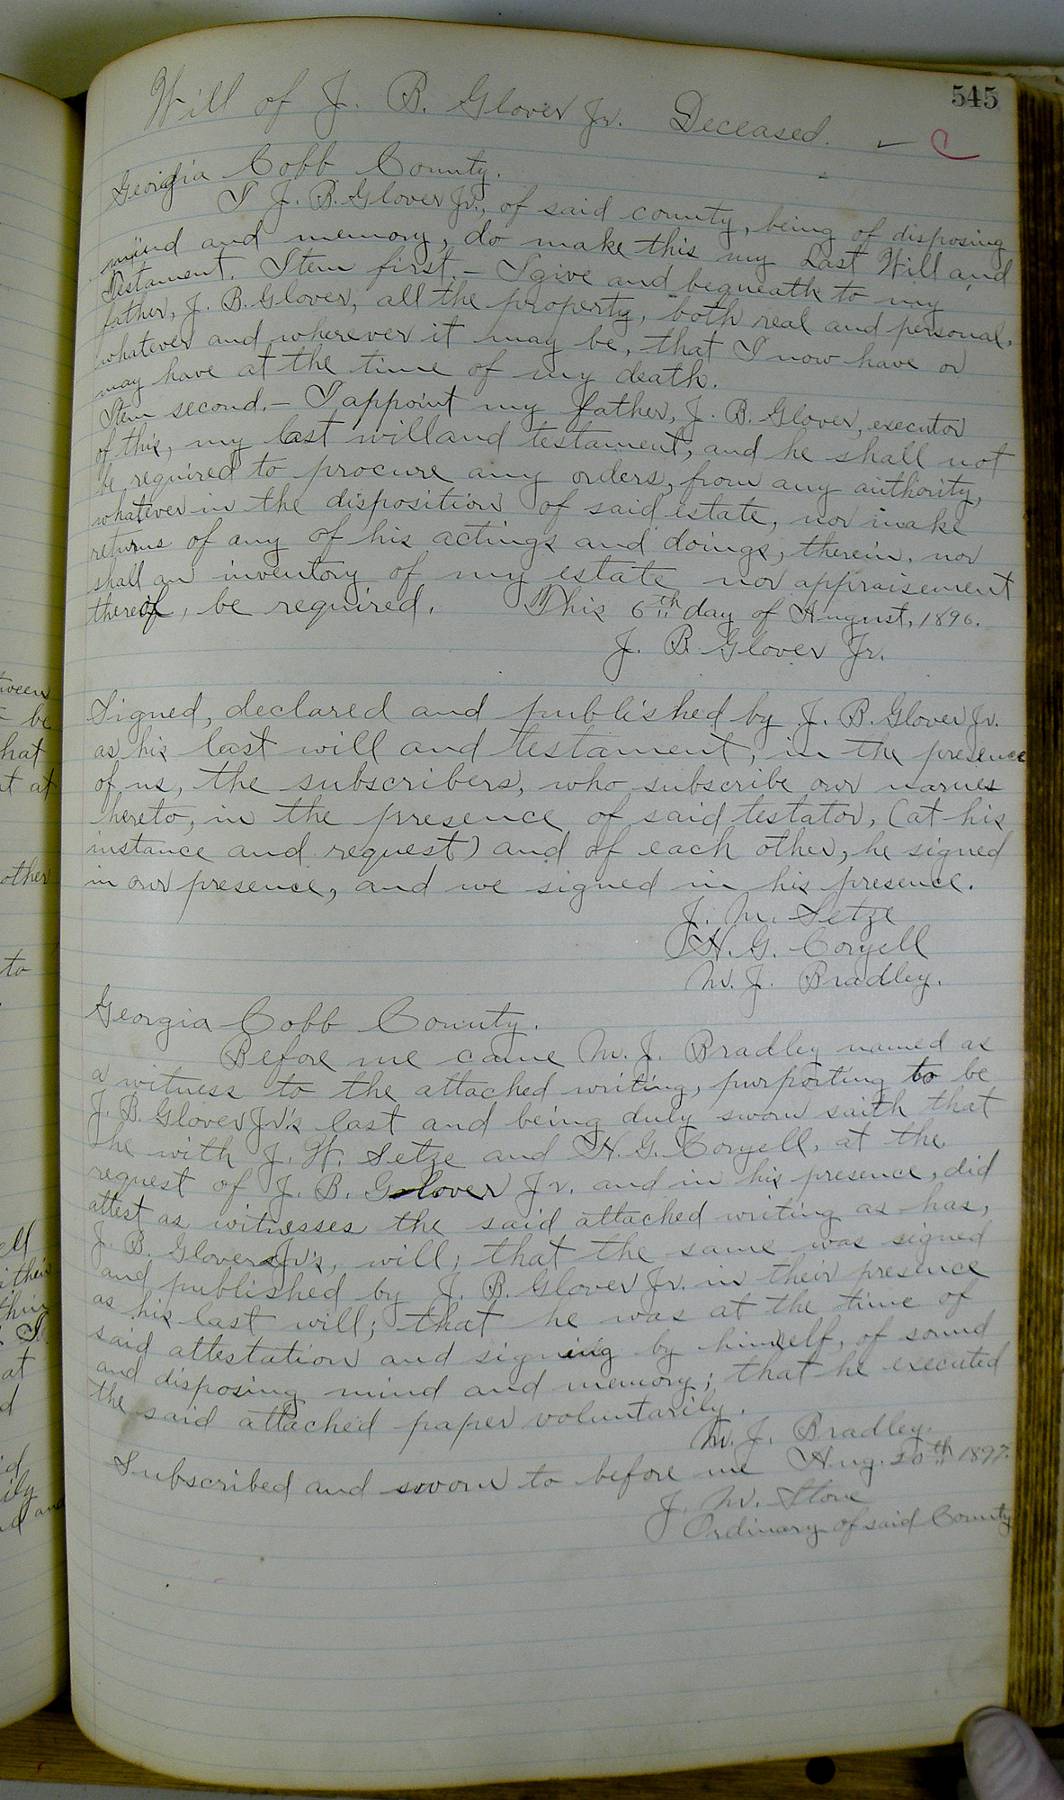 545
Will of J. B. Glover Jr. Deceased. C
Georgia Cobb County.
I J. B. Glover Jr., of said county, being of disposing
mind and memory, do make this my Last Will and
Testament. Item first. – I give and bequeath to my
father, J. B. Glover, all the property, both real and personal,
whatever and wherever it may be, that I now have or
may have at the time of my death.
Item second. – I appoint my father, J. B. Glover, executor
of this, my last will and testament, and he shall not
be required to procure any orders, from any authority,
whatever in the disposition of said estate, nor make
returns of any of his actings and doings, therein, nor
shall an inventory of my estate nor appraisement
thereof, be required. This 6th day of August, 1896.
J. B. Glover Jr.
Signed, declared and published by J. B. Glover Jr.
as his last will and testament, in the presence
of us, the subscribers, who subscribe our names
hereto, in the presence of said testator, (at his
instance and request) and of each other, he signed
in our presence, and we signed in his presence.
J. M. Setze
H. G. Coryell
M. J. Bradley.
Georgia Cobb County.
Before me came M. J. Bradley named as
a witness to the attached writing, purporting to be
J. B. Glover Jr's last and being duly sworn saith that
he with J. W. Setze and H. G. Coryell, at the
request of J. B. Glover Jr. and in his presence, did
attest as witnesses the said attached writing as has,
J. B. Glover Jr's, will; that the same was signed
and published by J. B. Glover Jr. in their presence
as his last will; that he was at the time of
said attestation and signing by himself, of sound
and disposing mind and memory; that he executed
the said attached paper voluntarily.
M. J. Bradley.
Subscribed and sworn to before me Aug. 20th 1897.
J. M. Stone
Ordinary of said County
tween
be
hat
at at
other
to
ell
their
at
d
ily